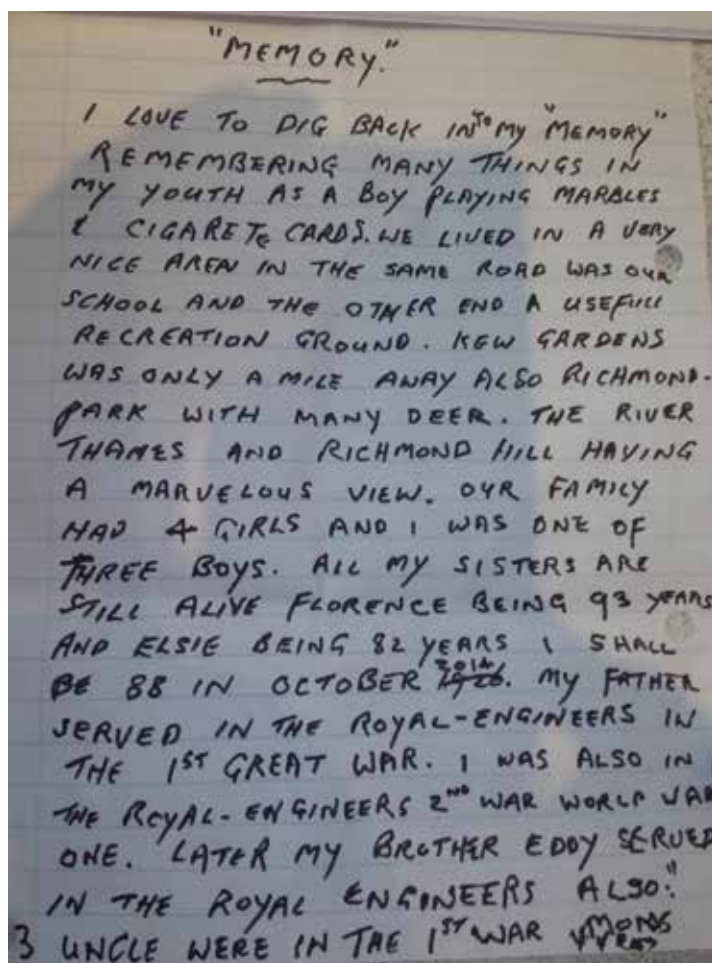 "MEMORY."
I LOVE TO DIG BACK INTO MY "MEMORY"
REMEMBERING MANY THINGS IN
MY YOUTH AS A BOY PLAYING MARBLES
& CIGARETe CARDS. WE LIVED IN A VERY
NICE AREA IN THE SAME ROAD WAS OUR
SCHOOL AND THE OTHER END A USEFULL
RECREATION GROUND. KEW GARDENS
WAS ONLY A MILE AWAY ALSO RICHMOND-
PARK WITH MANY DEER. THE RIVER
THAMES AND RICHMOND HILL HAVING
A MARVELOUS VIEW. OUR FAMILY
HAD 4 GIRLS AND I WAS ONE OF
THREE BOYS. ALL MY SISTERS ARE
STILL ALIVE FLORENCE BEING 93 YEARS
AND ELSIE BEING 82 YEARS I SHALL
BE 88 IN OCTOBER 2014. MY FATHER
SERVED IN THE ROYAL-ENGINEERS IN
THE 1ST GREAT WAR. I WAS ALSO IN
THE ROYAL-ENGINEERS 2ND WAR WORLD WAR
ONE. LATER MY BROTHER EDDY SERVED
IN THE ROYAL ENGINEERS ALSO."
3 UNCLE WERE IN THE 1ST WAR MONS